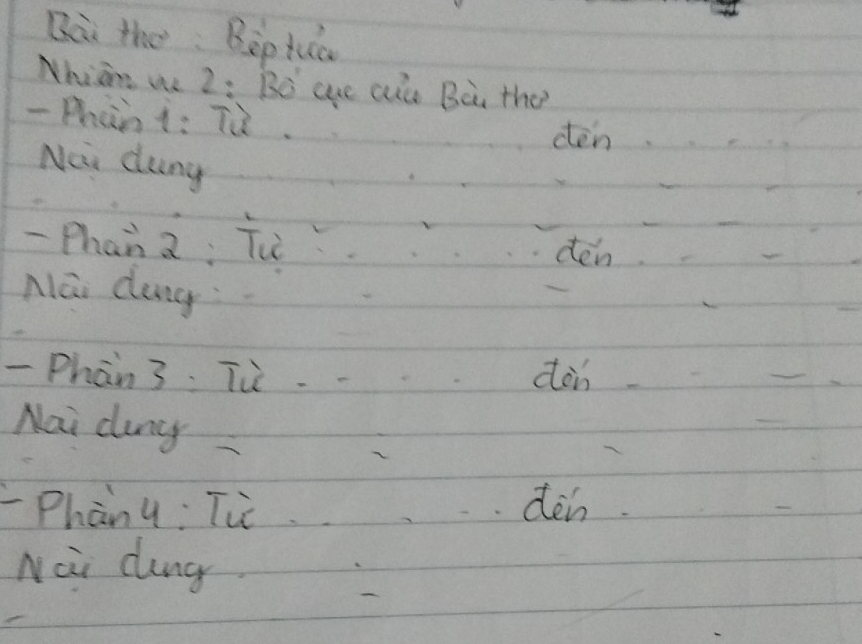 Bài thơ : Bếp lửa
Nhiệm vụ 2: Bố cục của Bài thơ
- Phần 1: Từ . . . . . đến . . . .
Nội dung . . . . . . . .
- Phần 2 : Từ . . . . . đến . . . .
Nội dung : . . . . .
- Phần 3 : Từ . . . . đến . . . .
Nội dung . . . .
- Phần 4 : Từ . . . . đến . . .
Nội dung . . .